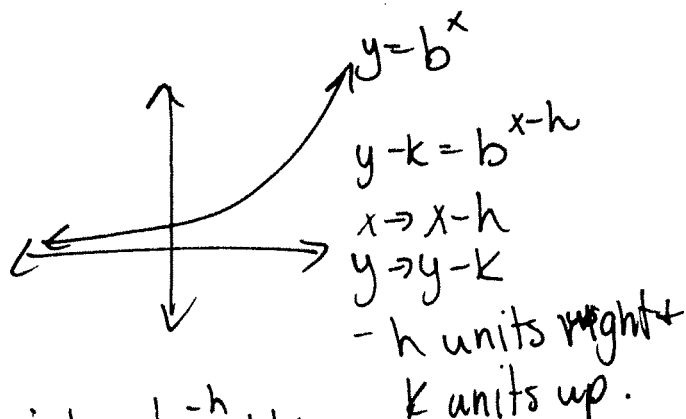 y = b^x
y - k = b^{x-h}
x → x-h
y → y-k
- h units right +
k units up.